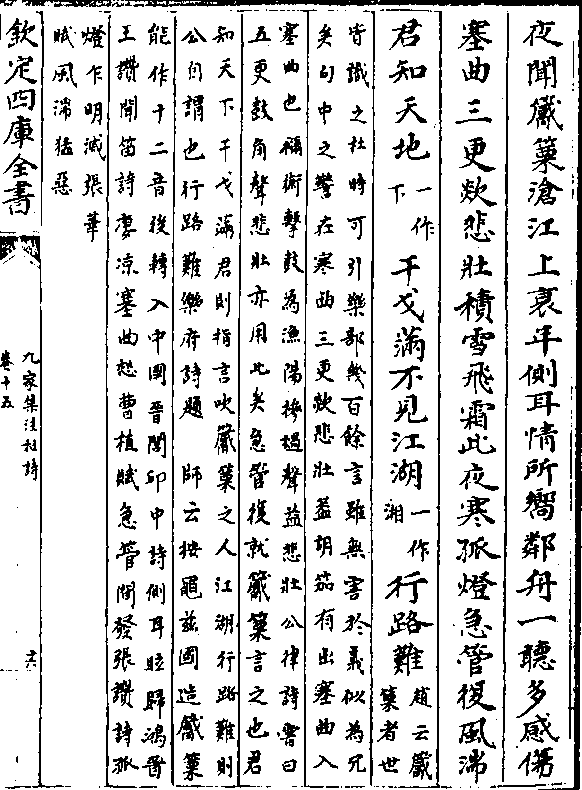 夜聞觱篥滄江上衰年側耳情所嚮鄰舟一聽多感傷
塞曲三更欻悲壯積雪飛霜此夜寒孤燈急管復風湍
君知天地一作下干戈滿不見江湖一作湘行路難趙云觱篥者世
皆識之杜時可引樂部幾百餘言雖無害於義似為冗
矣句中之警在塞曲三更欻悲壯蓋胡笳有出塞曲入
塞曲也禰衡擊鼓為漁陽摻檛聲益悲壯公律詩嘗曰
五更鼓角聲悲壯亦用此矣急管復就觱篥言之也君
知天下干戈滿君則指言吹觱篥之人江湖行路難則
公自謂也行路難樂府詩題 師云按龜茲國造觱篥
能作十二音後轉入中國晉閭邱中詩側耳眩歸鴻晉
王讚聞笛詩寥涼塞曲愁曹植賦急管閒發張讚詩孤
燈乍明滅張華
賦風湍猛惡
欽定四庫全書
九家集注杜詩
卷十五